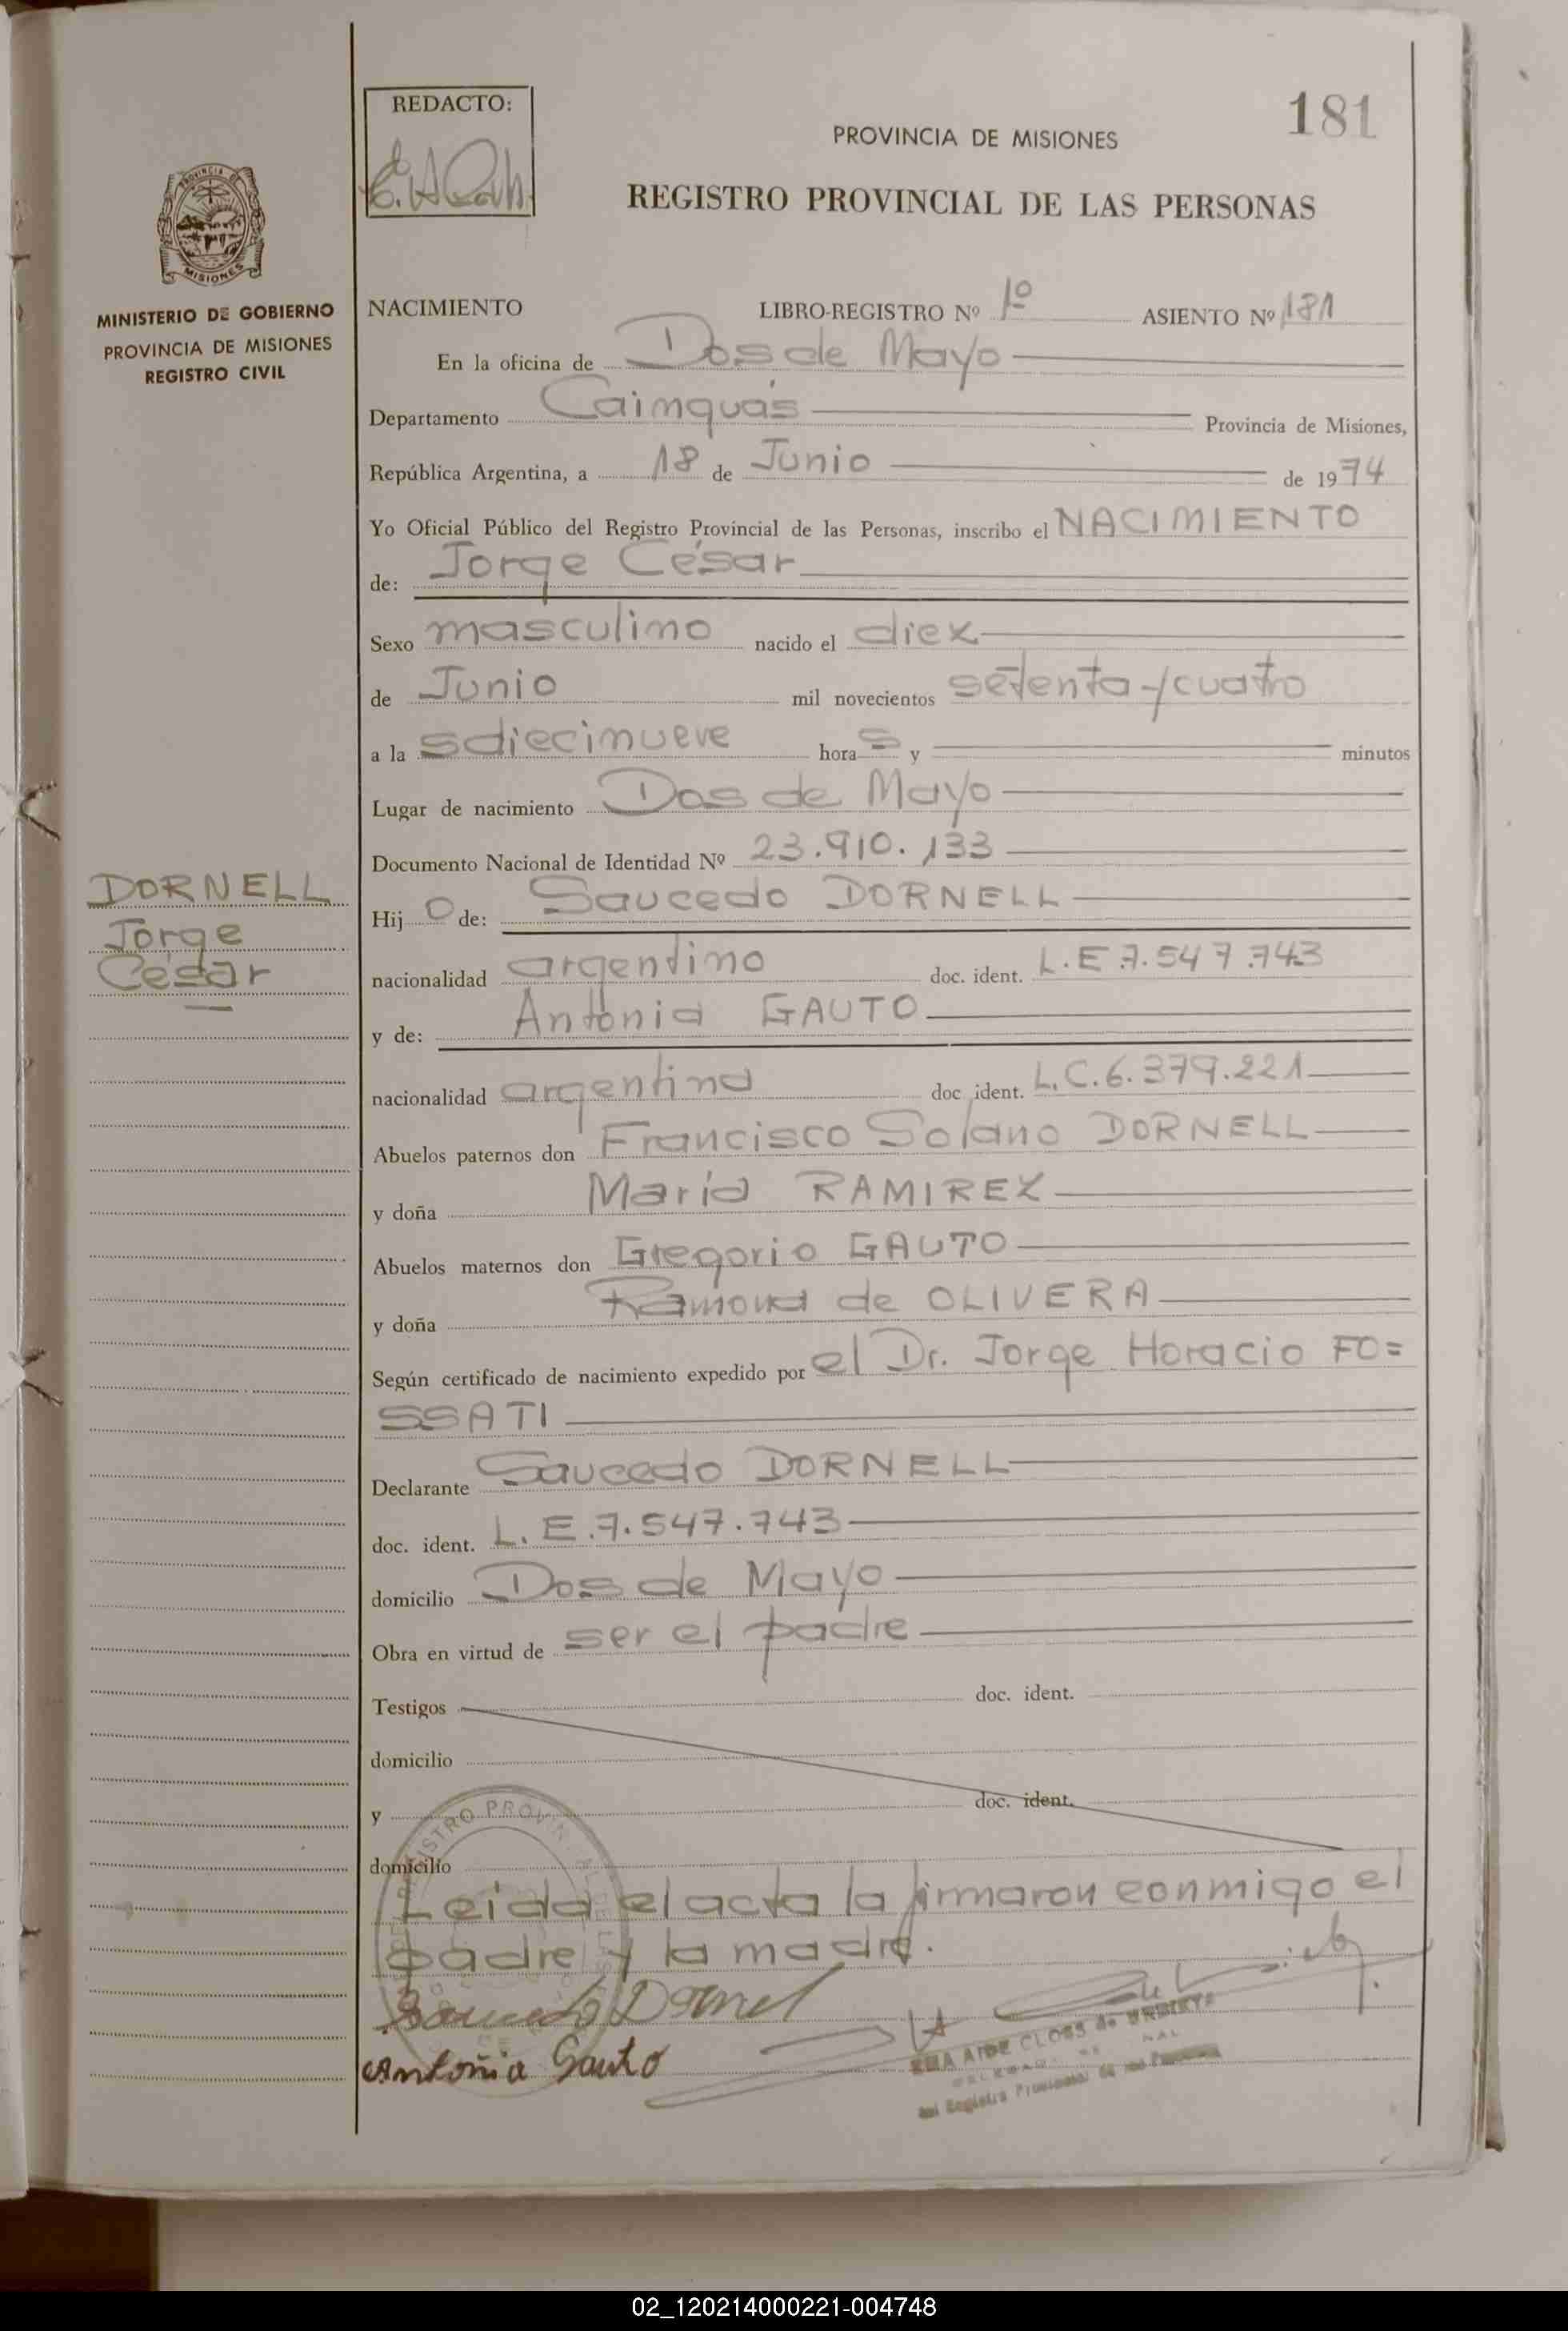 181
REDACTO:
PROVINCIA DE MISIONES
REGISTRO PROVINCIAL DE LAS PERSONAS
PROVINCIA DE
MISIONES
MINISTERIO DE GOBIERNO
PROVINCIA DE MISIONES
REGISTRO CIVIL
NACIMIENTO LIBRO-REGISTRO Nº 1º ASIENTO Nº 181
En la oficina de Dos de Mayo
Departamento Caimguás Provincia de Misiones,
República Argentina, a 18 de Junio de 1974
Yo Oficial Público del Registro Provincial de las Personas, inscribo el NACIMIENTO
de: Jorge César
Sexo masculino nacido el diez
de Junio mil novecientos setenta y cuatro
a la s diecinueve hora s y minutos
Lugar de nacimiento Dos de Mayo
Documento Nacional de Identidad Nº 23.910.133
DORNELL
Jorge
César
Hij o de: Saucedo DORNELL
nacionalidad argentino doc. ident. L.E.7.547.743
y de: Antonia GAUTO
nacionalidad argentina doc ident. L.C.6.379.221
Abuelos paternos don Francisco Solano DORNELL
y doña María RAMIREZ
Abuelos maternos don Gregorio GAUTO
y doña Ramona de OLIVERA
Según certificado de nacimiento expedido por el Dr. Jorge Horacio FO=
SSATI
Declarante Saucedo DORNELL
doc. ident. L.E.7.547.743
domicilio Dos de Mayo
Obra en virtud de ser el padre
Testigos doc. ident.
domicilio
y doc. ident.
domicilio
Leida el acta la firmaron conmigo el
padre y la madre.
Saucedo Dornel
Antonia Gauto
del Registro Provincial de las Personas
02_120214000221-004748